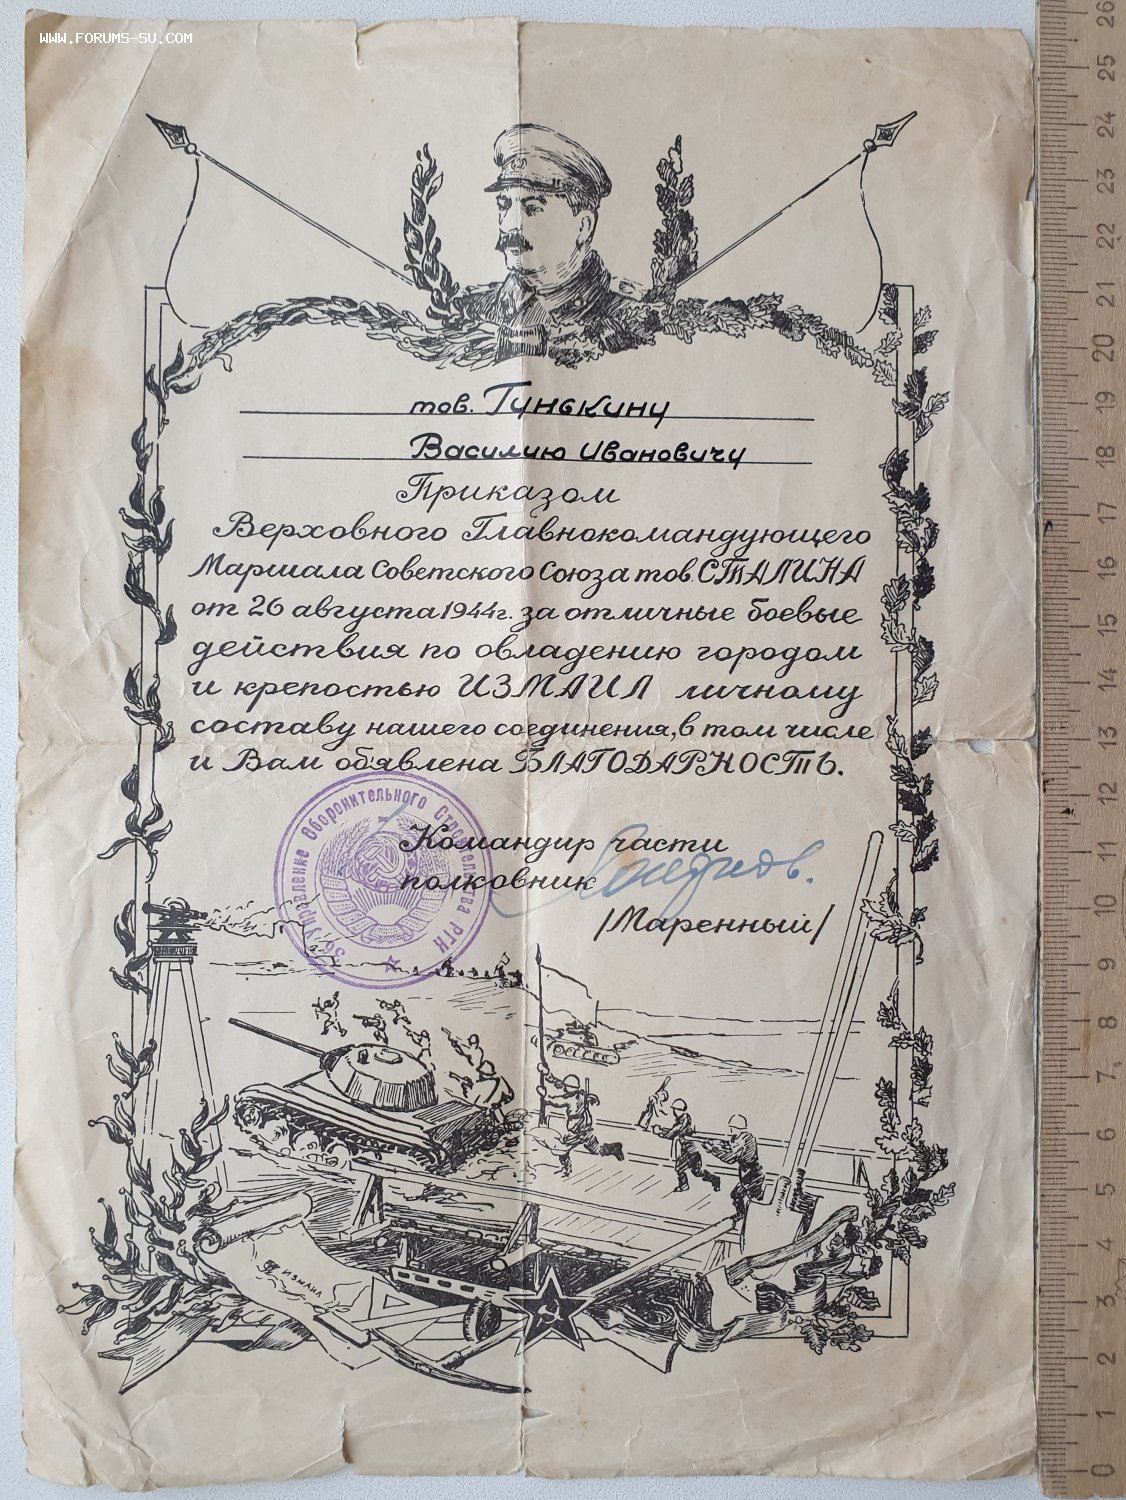 WWW.FORUMS-SU.COM
тов. Гунькину
Василию Ивановичу
Приказом
Верховного Главнокомандующего
Маршала Советского Союза тов. СТАЛИНА
от 26 августа 1944г. за отличные боевые
действия по овладению городом
и крепостью ИЗМАИЛ личному
составу нашего соединения, в том числе
и Вам объявлена БЛАГОДАРНОСТЬ.
Командир части
полковник
/Маренный/
36 Управление Оборонительного Строительства РГК
ИЗМАИЛ
26
25
24
23
22
21
20
19
18
17
16
15
14
13
12
11
10
9
8
7
6
5
4
3
2
1
0